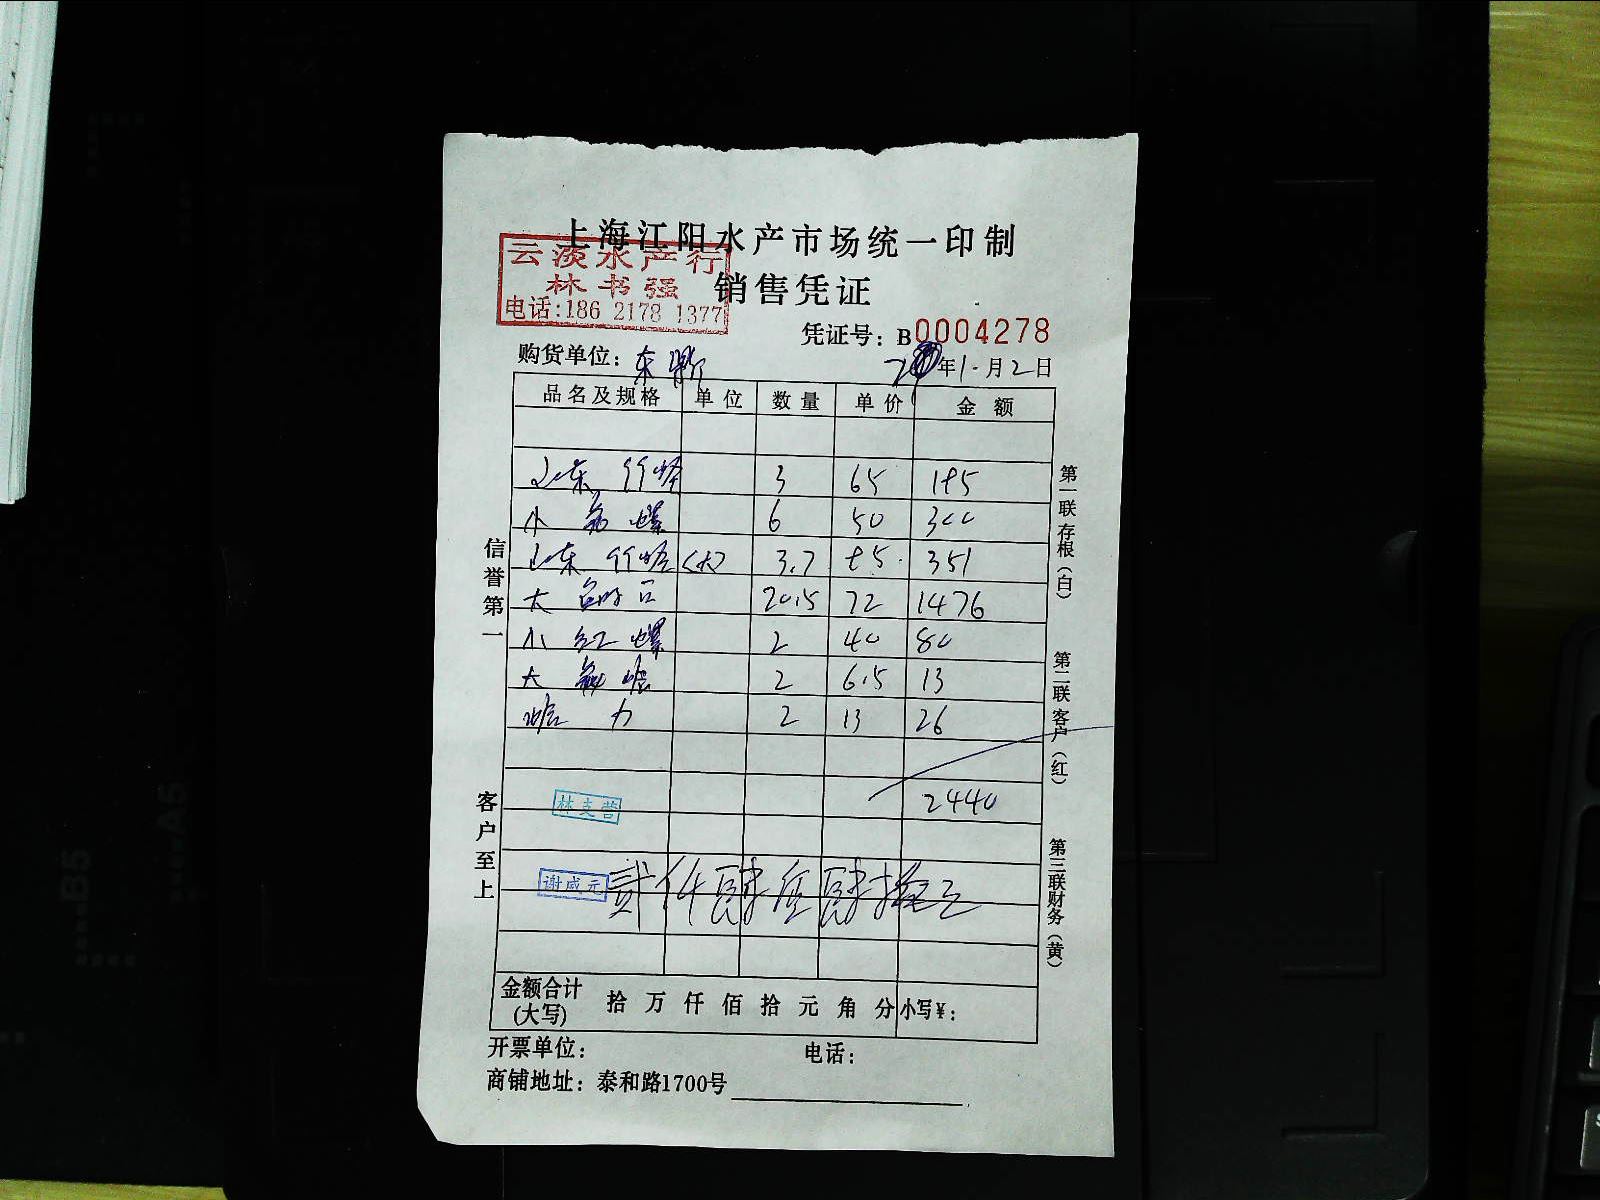 上海江阳水产市场统一印制
云淡水产行
林书强
电话:186 2178 1377
销售凭证
凭证号：B0004278
购货单位：东
年1月2日
品名及规格 单位 数量 单价 金额
山东 竹蛏 3 65 195
小 螺 6 50 300
山东 竹蛏 <大> 3.7 95 351
大 20.5 72 1476
小 红 螺 2 40 80
大 2 6.5 13
蛤 力 2 13 26
2440
林支营
谢咸元
贰仟肆佰肆拾元
金额合计(大写) 拾 万 仟 佰 拾 元 角 分 小写¥：
开票单位：
电话：
商铺地址：泰和路1700号
信誉第一
客户至上
第一联存根（白）
第二联客户（红）
第三联财务（黄）
B5
A5